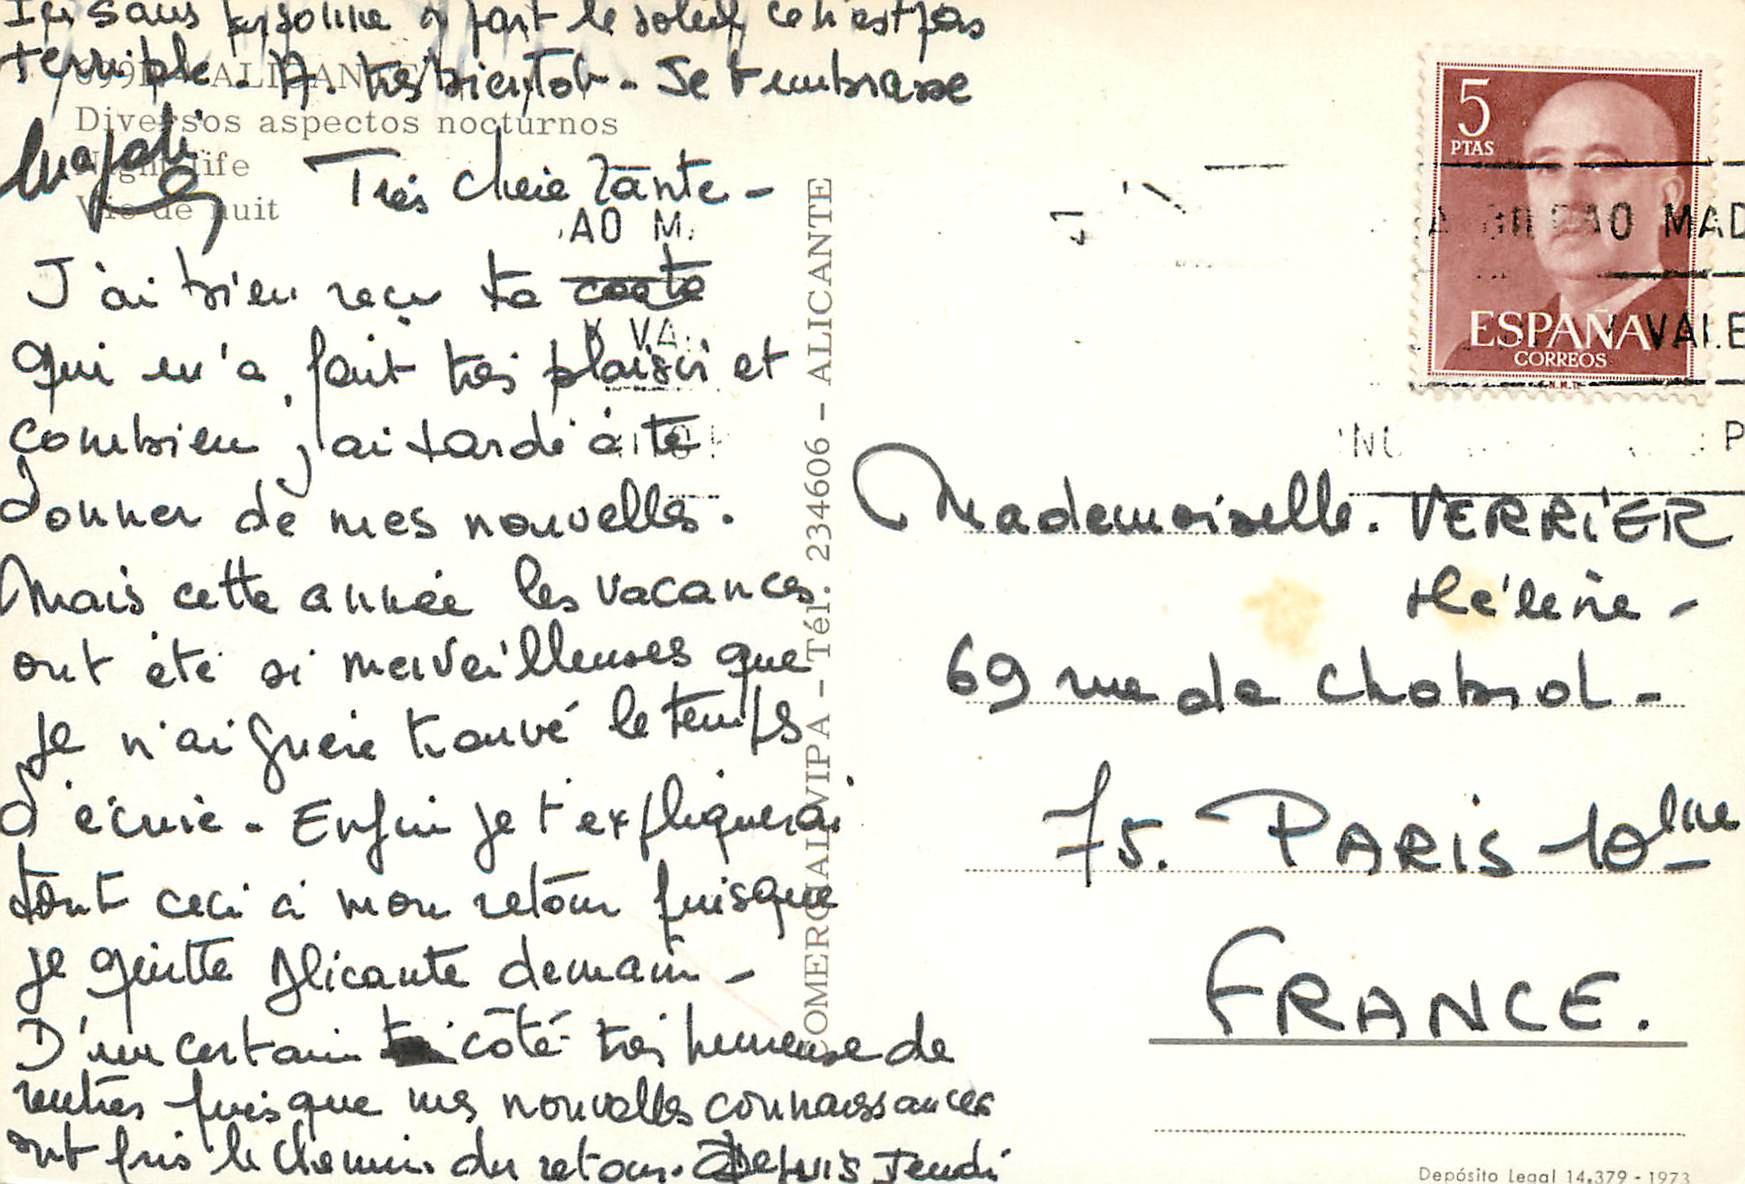 Très chère Tante -
J'ai bien reçu ta carte
qui m'a fait très plaisir et
combien j'ai tardé à te
donner de mes nouvelles.
Mais cette année les vacances
ont été si merveilleuses que
je n'ai guère trouvé le temps
d'écrire. Enfin je t'expliquerai
tout ceci à mon retour puisque
je quitte Alicante demain -
D'un certain côté très heureuse de
rentrer puisque mes nouvelles connaissances
ont pris le chemin du retour. Depuis Jeudi
suis sans personne à part le soleil ce n'est pas
terrible. A très bientôt. Je t'embrasse
Magali
ALICANTE
Diversos aspectos nocturnos
Night life
Vie de nuit
COMERCIAL VIPA - Tél. 234606 - ALICANTE
5
PTAS
ESPAÑA
CORREOS
BILBAO MAD
VALE
Mademoiselle. VERRIER
Hélène -
69 rue de Chabrol -
75. PARIS 10ème
FRANCE.
Depósito Legal 14.379 - 1973